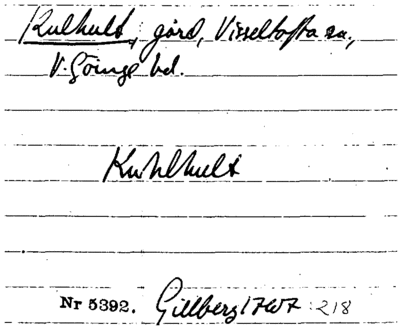 Kulhult, gård, Visseltofta sn.,
V. Göinge hd.
Kuhlhult
Nr 5392. Gillberg 1767 : 218